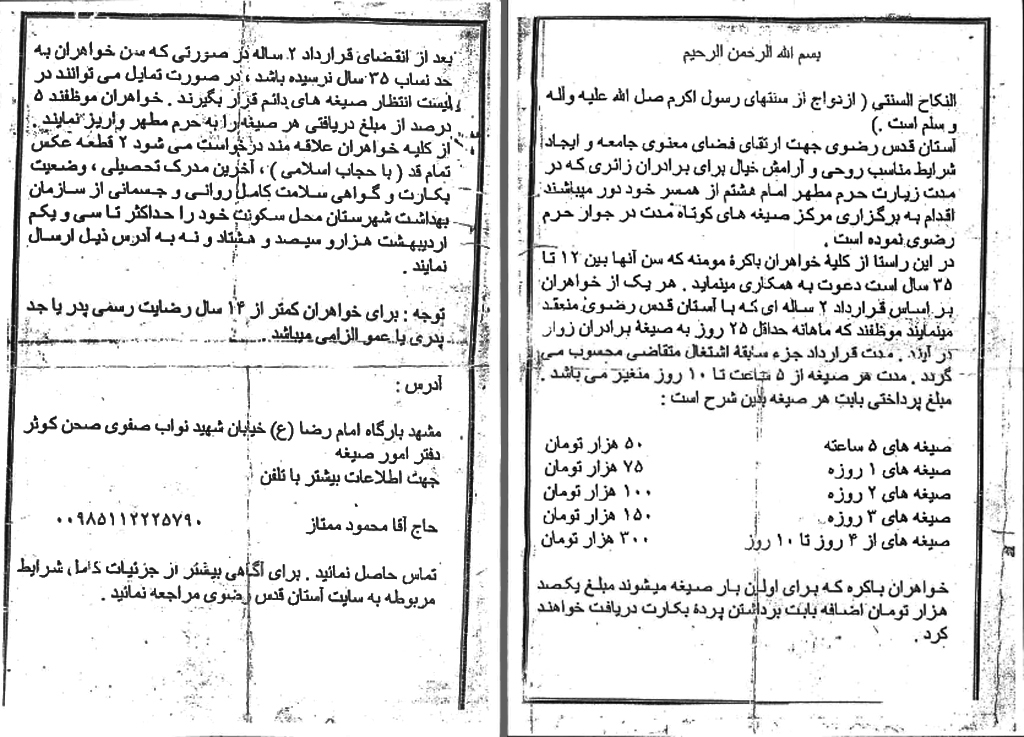 بسم الله الرحمن الرحیم
النکاح السنتی ( ازدواج از سنتهای رسول اکرم صل الله علیه واله
و سلم است .)
آستان قدس رضوی جهت ارتقای فضای معنوی جامعه و ایجاد
شرایط مناسب روحی و آرامش خیال برای برادران زائری که در
مدت زیارت حرم مطهر امام هشتم از همسر خود دور میباشند
اقدام به برگزاری مرکز صیغه های کوتاه مدت در جوار حرم
رضوی نموده است .
در این راستا از کلیهٔ خواهران باکرهٔ مومنه که سن آنها بین ۱۲ تا
۳۵ سال است دعوت به همکاری مینماید . هر یک از خواهران
بر اساس قرارداد ۲ ساله ای که با آستان قدس رضوی منعقد
مینمایند موظفند که ماهانه حداقل ۲۵ روز به صیغهٔ برادران زوار
در آیند . مدت قرارداد جزء سابقهٔ اشتغال متقاضی محسوب می
گردد . مدت هر صیغه از ۵ ساعت تا ۱۰ روز متغیر می باشد .
مبلغ پرداختی بابت هر صیغه بدین شرح است :
صیغه های ۵ ساعته ۵۰ هزار تومان
صیغه های ۱ روزه ۷۵ هزار تومان
صیغه های ۲ روزه ۱۰۰ هزار تومان
صیغه های ۳ روزه ۱۵۰ هزار تومان
صیغه های از ۴ روز تا ۱۰ روز ۳۰۰ هزار تومان
خواهران باکره که برای اولین بار صیغه میشوند مبلغ یکصد
هزار تومان اضافه بابت برداشتن پردهٔ بکارت دریافت خواهند
کرد .
بعد از انقضای قرارداد ۲ ساله در صورتی که سن خواهران به
حد نساب ۳۵ سال نرسیده باشد ، در صورت تمایل می توانند در
لیست انتظار صیغه های دائم قرار بگیرند . خواهران موظفند ۵
درصد از مبلغ دریافتی هر صیغه را به حرم مطهر واریز نمایند .
از کلیه خواهران علاقه مند درخواست می شود ۲ قطعه عکس
تمام قد ( با حجاب اسلامی ) ، آخرین مدرک تحصیلی ، وضعیت
بکارت و گواهی سلامت کامل روانی و جسمانی از سازمان
بهداشت شهرستان محل سکونت خود را حداکثر تا سی و یکم
اردیبهشت هزارو سیصد و هشتاد و نه به آدرس ذیل ارسال
نمایند .
توجه : برای خواهران کمتر از ۱۴ سال رضایت رسمی پدر یا جد
پدری یا عمو الزامی میباشد .
آدرس :
مشهد بارگاه امام رضا (ع) خیابان شهید نواب صفوی صحن کوثر
دفتر امور صیغه
جهت اطلاعات بیشتر با تلفن
حاج آقا محمود ممتاز ۰۰۹۸۵۱۱۲۲۲۵۷۹۰
تماس حاصل نمائید . برای آگاهی بیشتر از جزئیات کامل شرایط
مربوطه به سایت آستان قدس رضوی مراجعه نمائید .